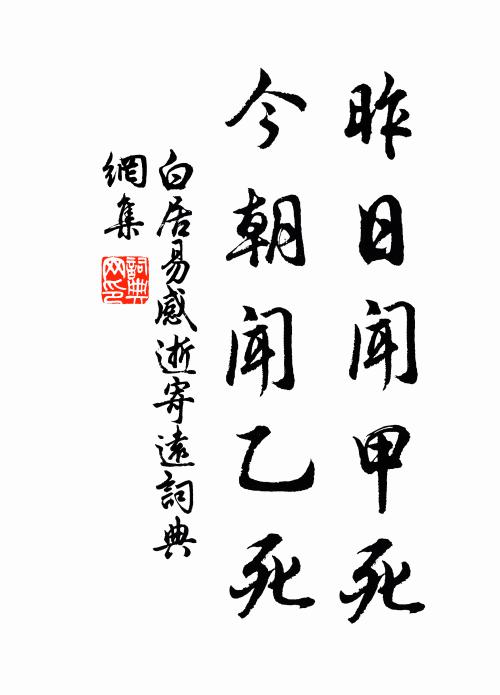 昨日聞甲死
今朝聞乙死
白居易感逝寄遠詞典
網集
詞典
網印